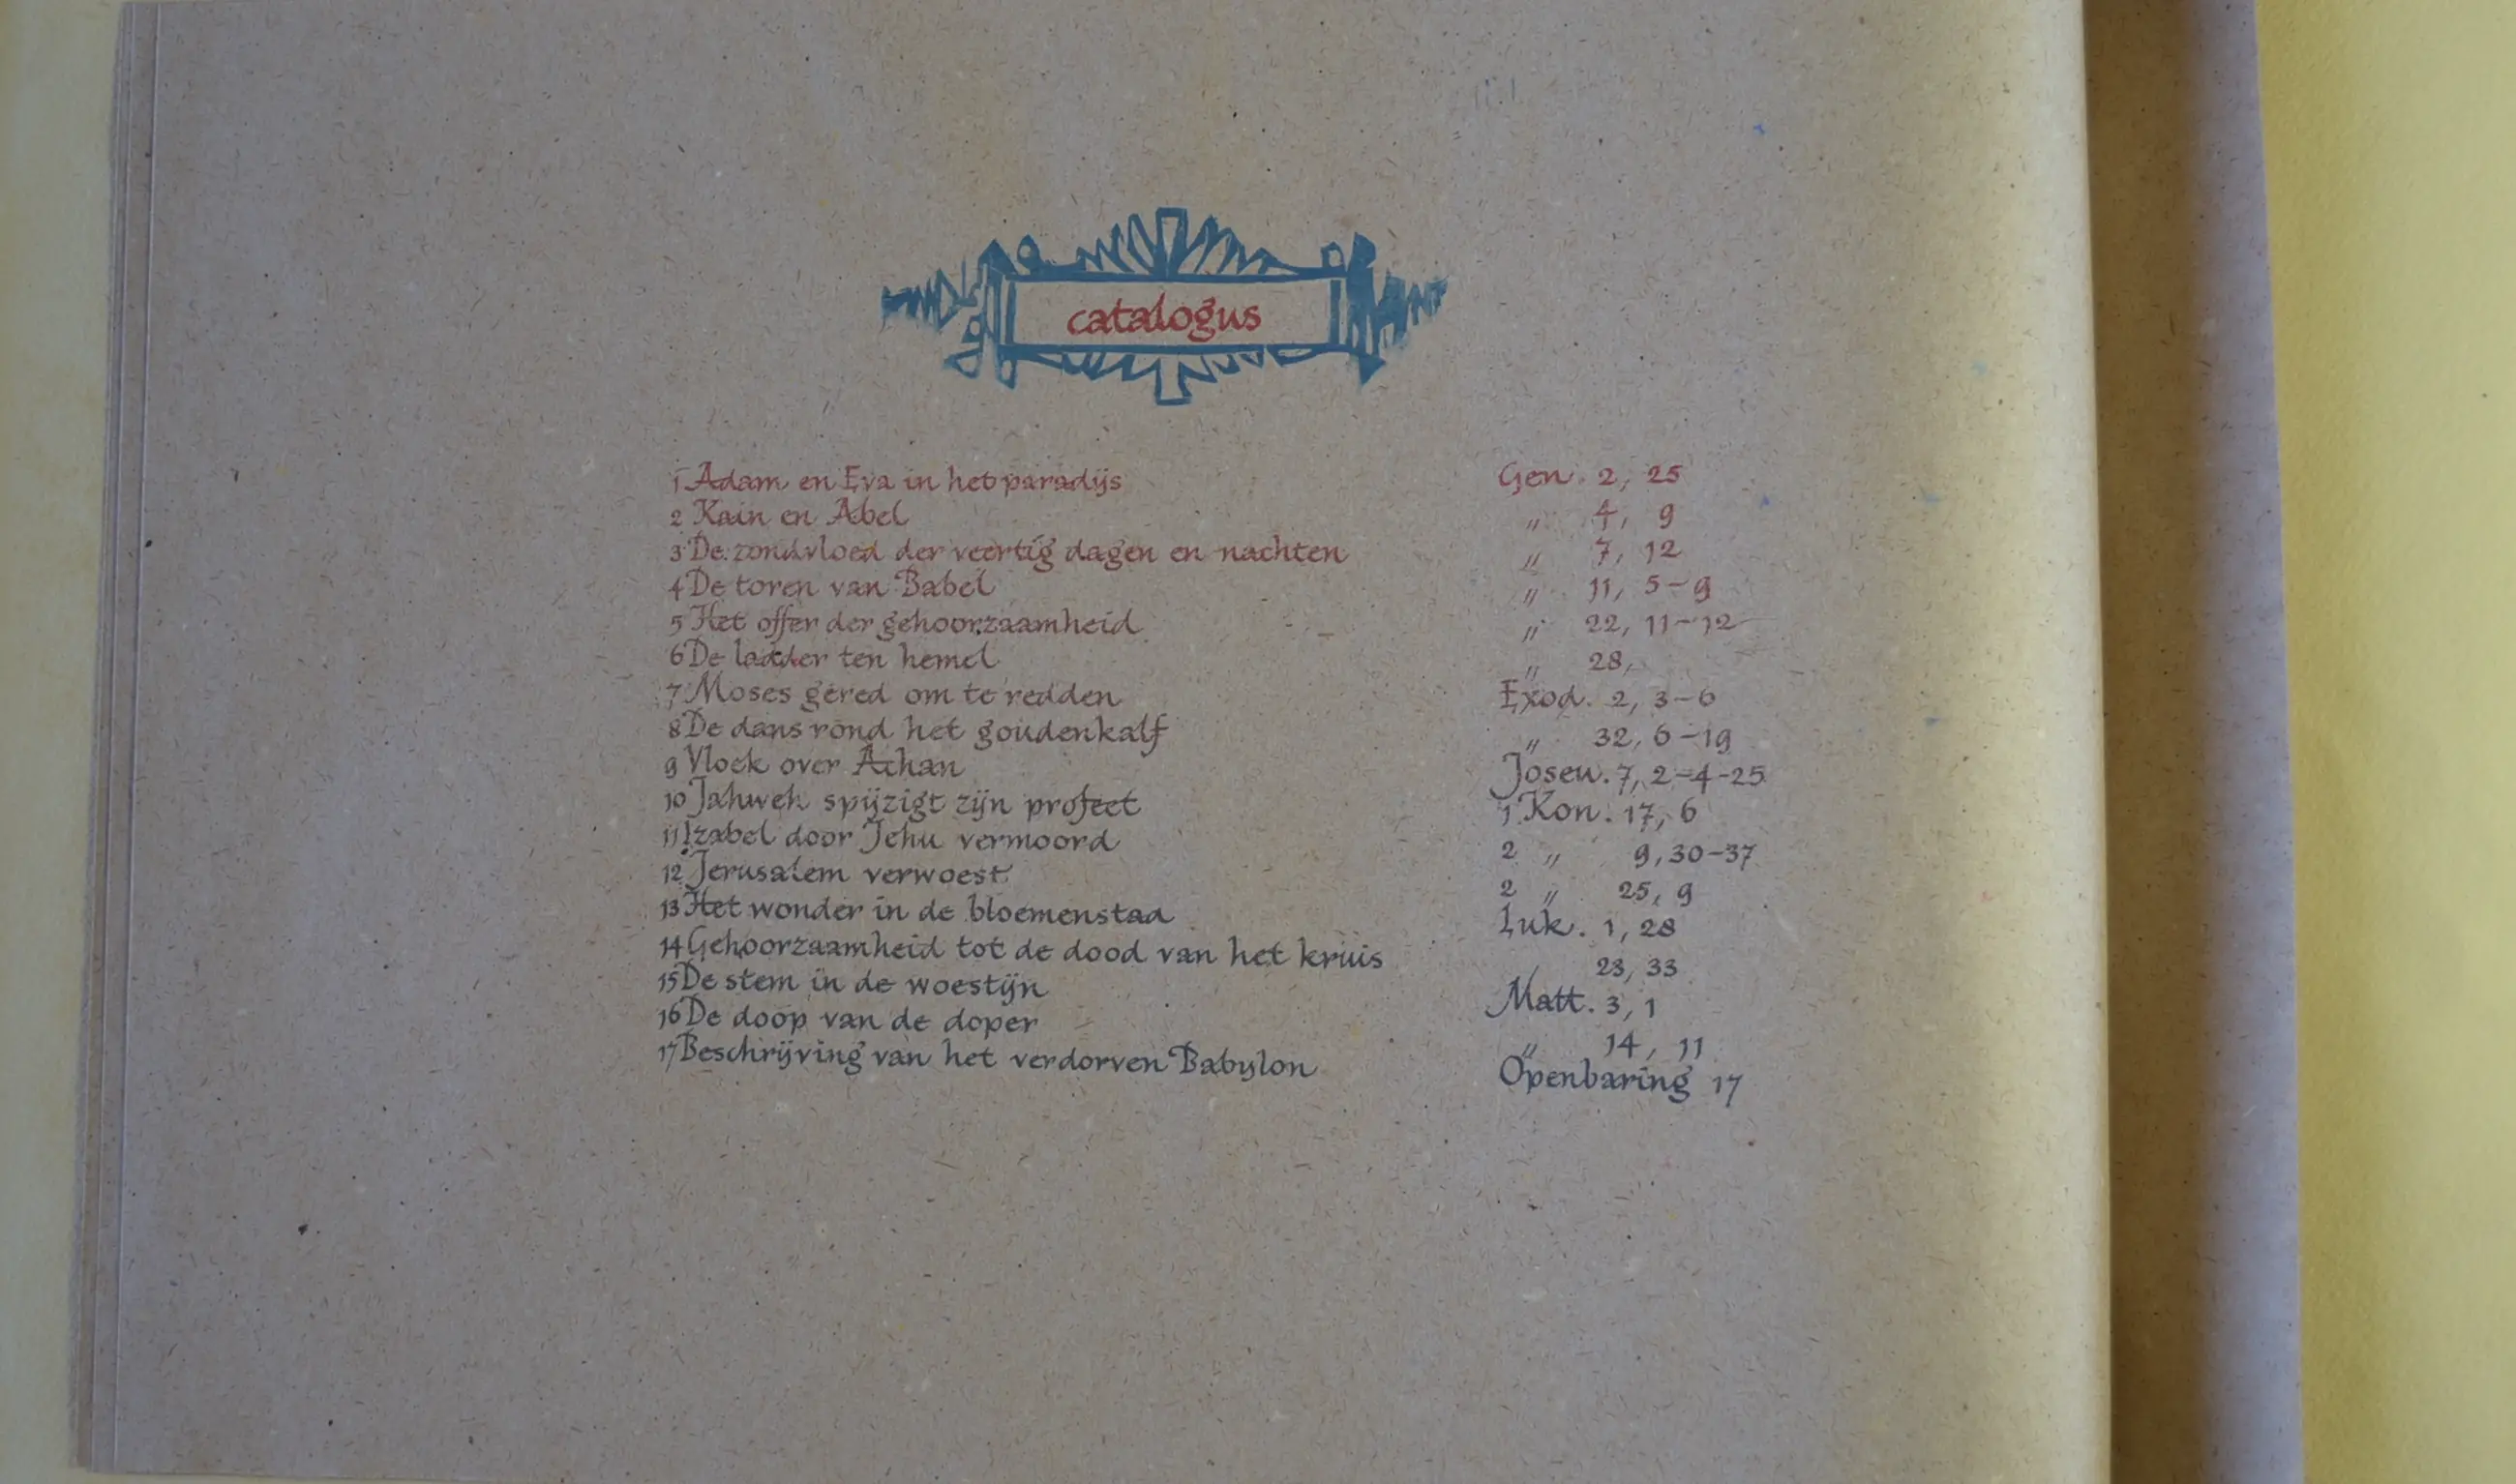 catalogus
1 Adam en Eva in het paradijs Gen. 2, 25
2 Kain en Abel " 4, 9
3 De zondvloed der veertig dagen en nachten " 7, 12
4 De toren van Babel " 11, 5-9
5 Het offer der gehoorzaamheid " 22, 11-12
6 De ladder ten hemel " 28,
7 Moses gered om te redden Exod. 2, 3-6
8 De dans rond het gouden kalf " 32, 6-19
9 Vloek over Achan Josew. 7, 2-4-25
10 Jahweh spijzigt zijn profeet 1 Kon. 17, 6
11 Izabel door Jehu vermoord 2 " 9, 30-37
12 Jerusalem verwoest 2 " 25, 9
13 Het wonder in de bloemenstad Luk. 1, 28
14 Gehoorzaamheid tot de dood van het kruis 23, 33
15 De stem in de woestijn Matt. 3, 1
16 De doop van de doper " 14, 11
17 Beschrijving van het verdorven Babylon Openbaring 17